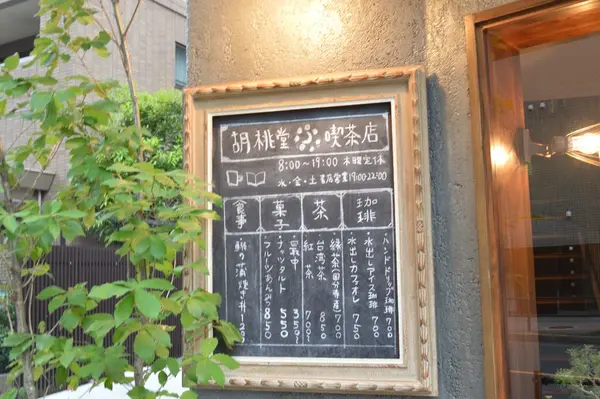 胡桃堂喫茶店
8:00〜19:00 木曜定休
水・金・土 書店営業19:00-22:00
珈琲
・ハンドドリップ珈琲 700
・水出しアイス珈琲 700
・水出しカフェオレ 750
茶
・緑茶(国分寺産) 700
・台湾茶 850
・紅茶 700〜
菓子
・最中 350〜
・ナッツタルト 550
・フルーツあんみつ 850
食事